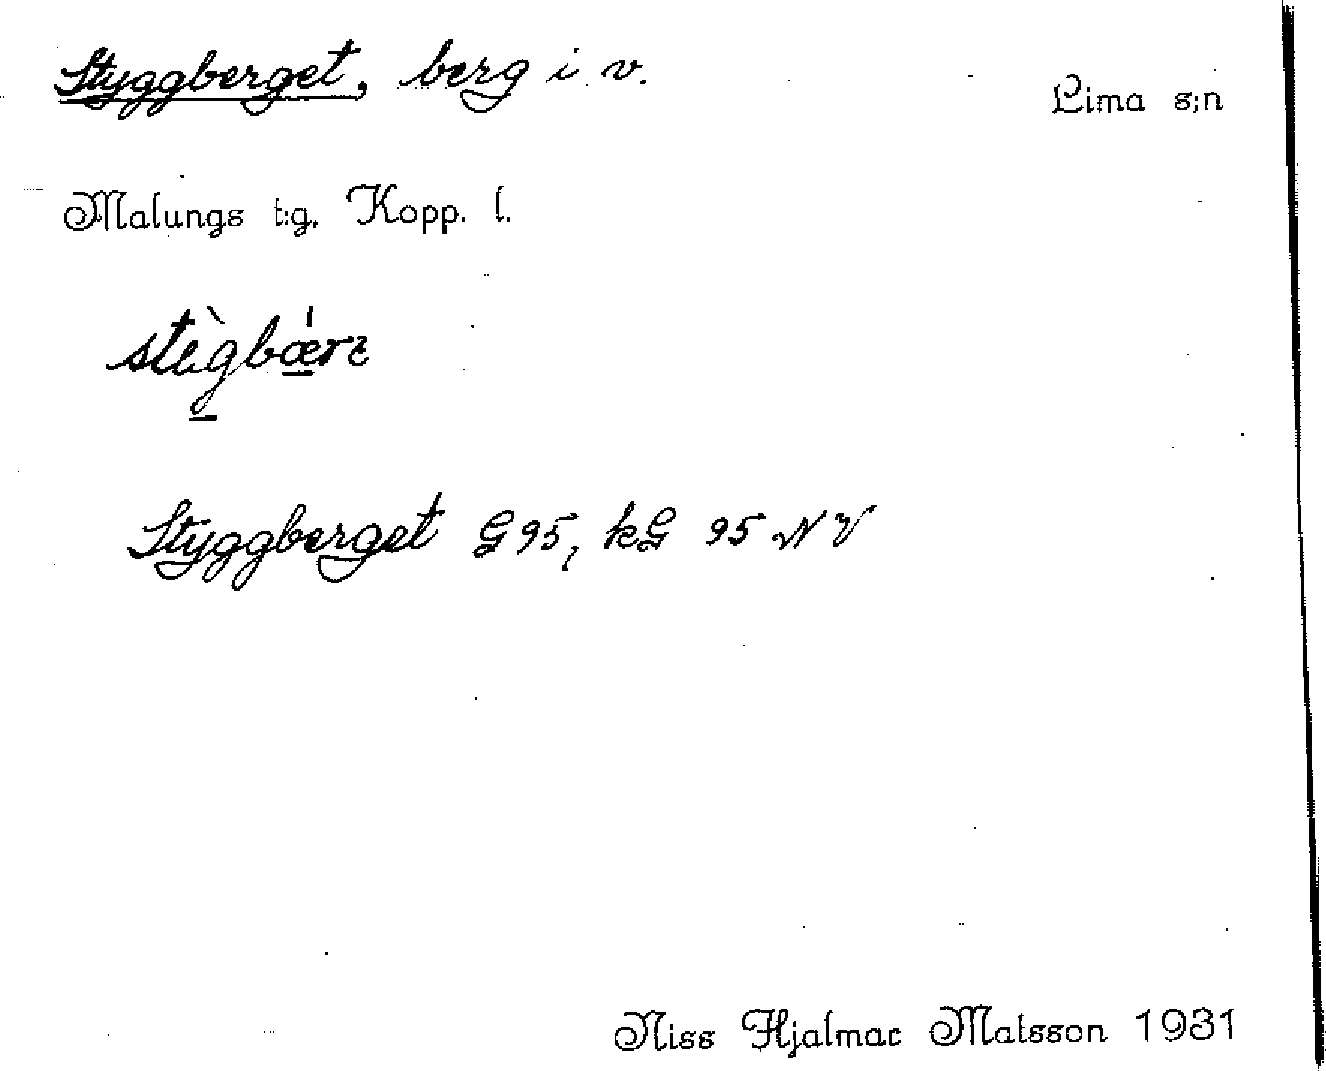 Styggberget, berg i v.
Lima s:n
Malungs t:g. Kopp. l.
Styggberget G 95, kG 95 NV
Niss Hjalmar Matsson 1931